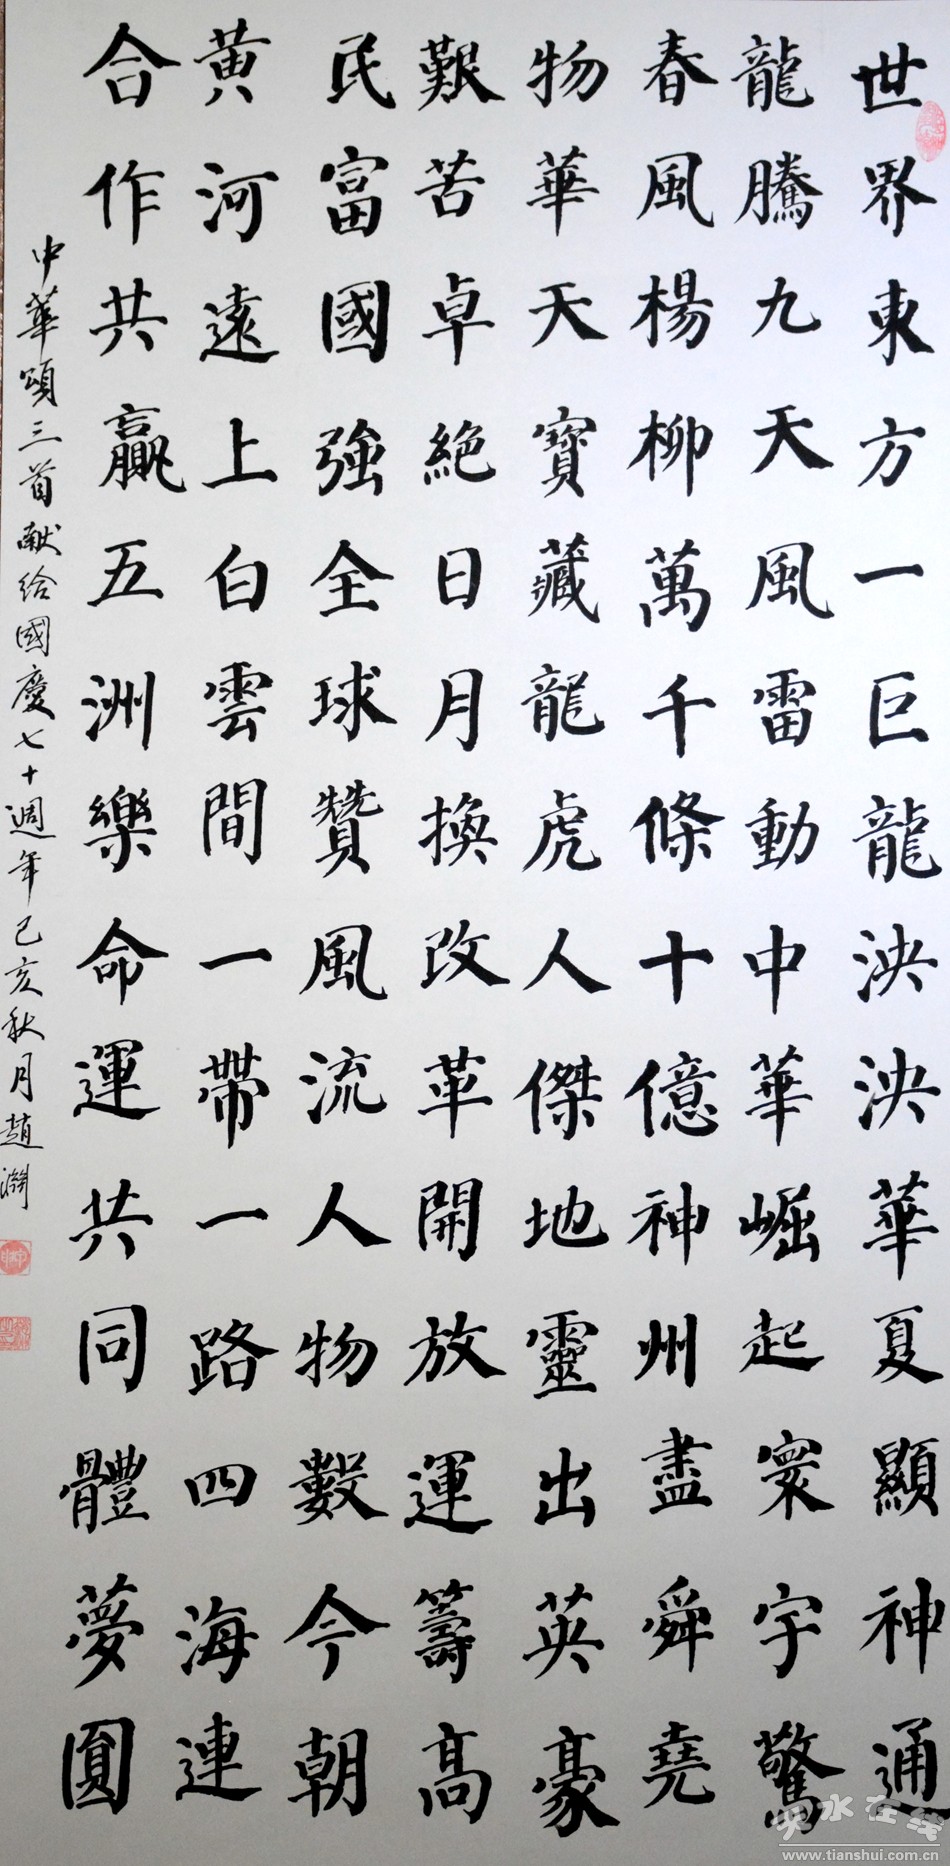 世界東方一巨龍泱泱華夏顯神通
龍騰九天風雷動中華崛起寰宇驚
春風楊柳萬千條十億神州盡舜堯
物華天寶藏龍虎人傑地靈出英豪
艱苦卓絕日月換改革開放運籌高
民富國強全球贊風流人物數今朝
黃河遠上白雲間一帶一路四海連
合作共贏五洲樂命運共同體夢圓
中華頌三首献给國慶七十週年己亥秋月趙渊
天水在线
www.tianshui.com.cn